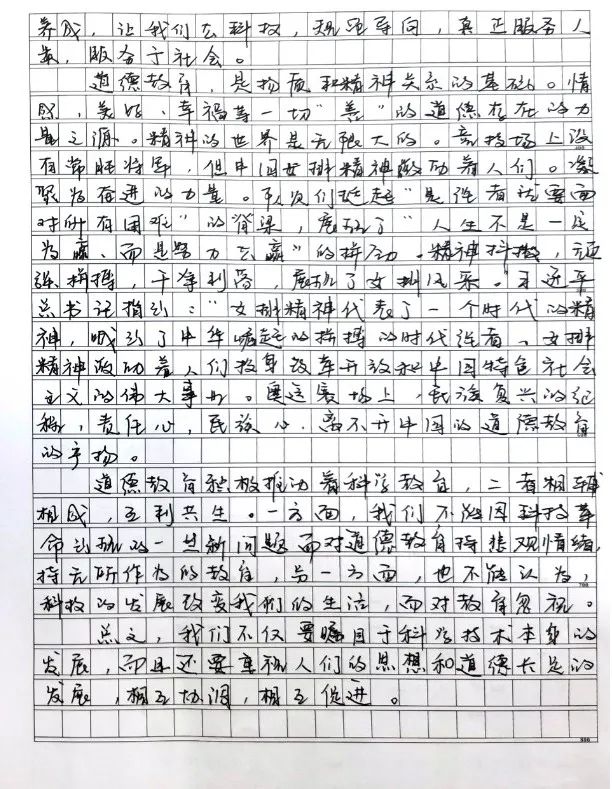 养成，让我们在科技，规范导向，真正服务人
类，服务于社会。
道德教育，是物质和精神关系的基础。情
感，美好、幸福等一切“善”的道德存在的力
量之源。精神的世界是无限大的。竞技场上没
有常胜将军，但中国女排精神激励着人们。凝
聚为奋进的力量。队员们挺起“是强者就要面
对所有困难”的脊梁，展现了“人生不是一定
为赢，而是努力去赢”的拼劲。精神抖擞，顽
强拼搏，干净利落，展现了女排风采。习近平
总书记指引：“女排精神代表了一个时代的精
神，吹引了中华崛起的拼搏的时代强音。女排
精神激励着人们投身改革开放和中国特色社会
主义的伟大事业。奥运赛场上，民族复兴的征
程，责任心，民族心，离不开中国的道德教育
的产物。
道德教育积极推动着科学教育，二者相辅
相成，互利共生。一方面，我们不能因科技革
命出现的一些新问题而对道德教育持悲观情绪，
持无所作为的教育，另一方面，也不能认为，
科技的发展改变我们的生活，而对教育忽视。
总之，我们不仅要瞩目于科学技术本身的
发展，而且还要重视人们的思想和道德长足的
发展，相互协调，相互促进。
700
800